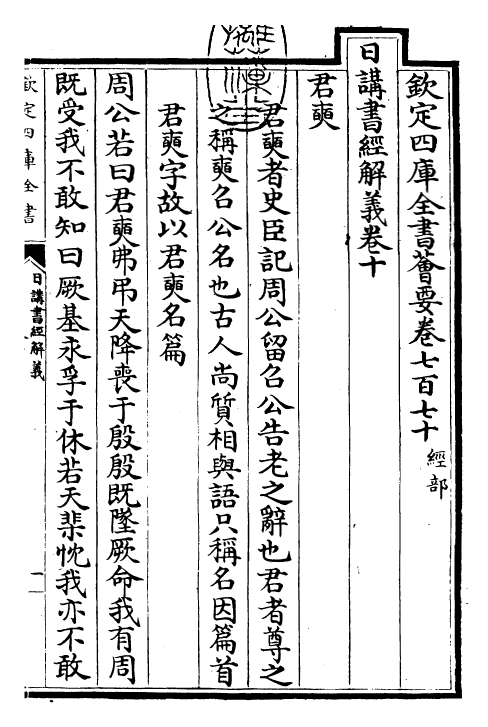 欽定四庫全書薈要卷七百七十
經部
日講書經解義卷十
君奭
君奭者史臣記周公留召公告老之辭也君者尊之
之稱奭召公名也古人尚質相與語只稱名因篇首
君奭字故以君奭名篇
周公若曰君奭弗弔天降喪于殷殷既墜厥命我有周
既受我不敢知曰厥基永孚于休若天棐忱我亦不敢
欽定四庫全書
日講書經解義
一